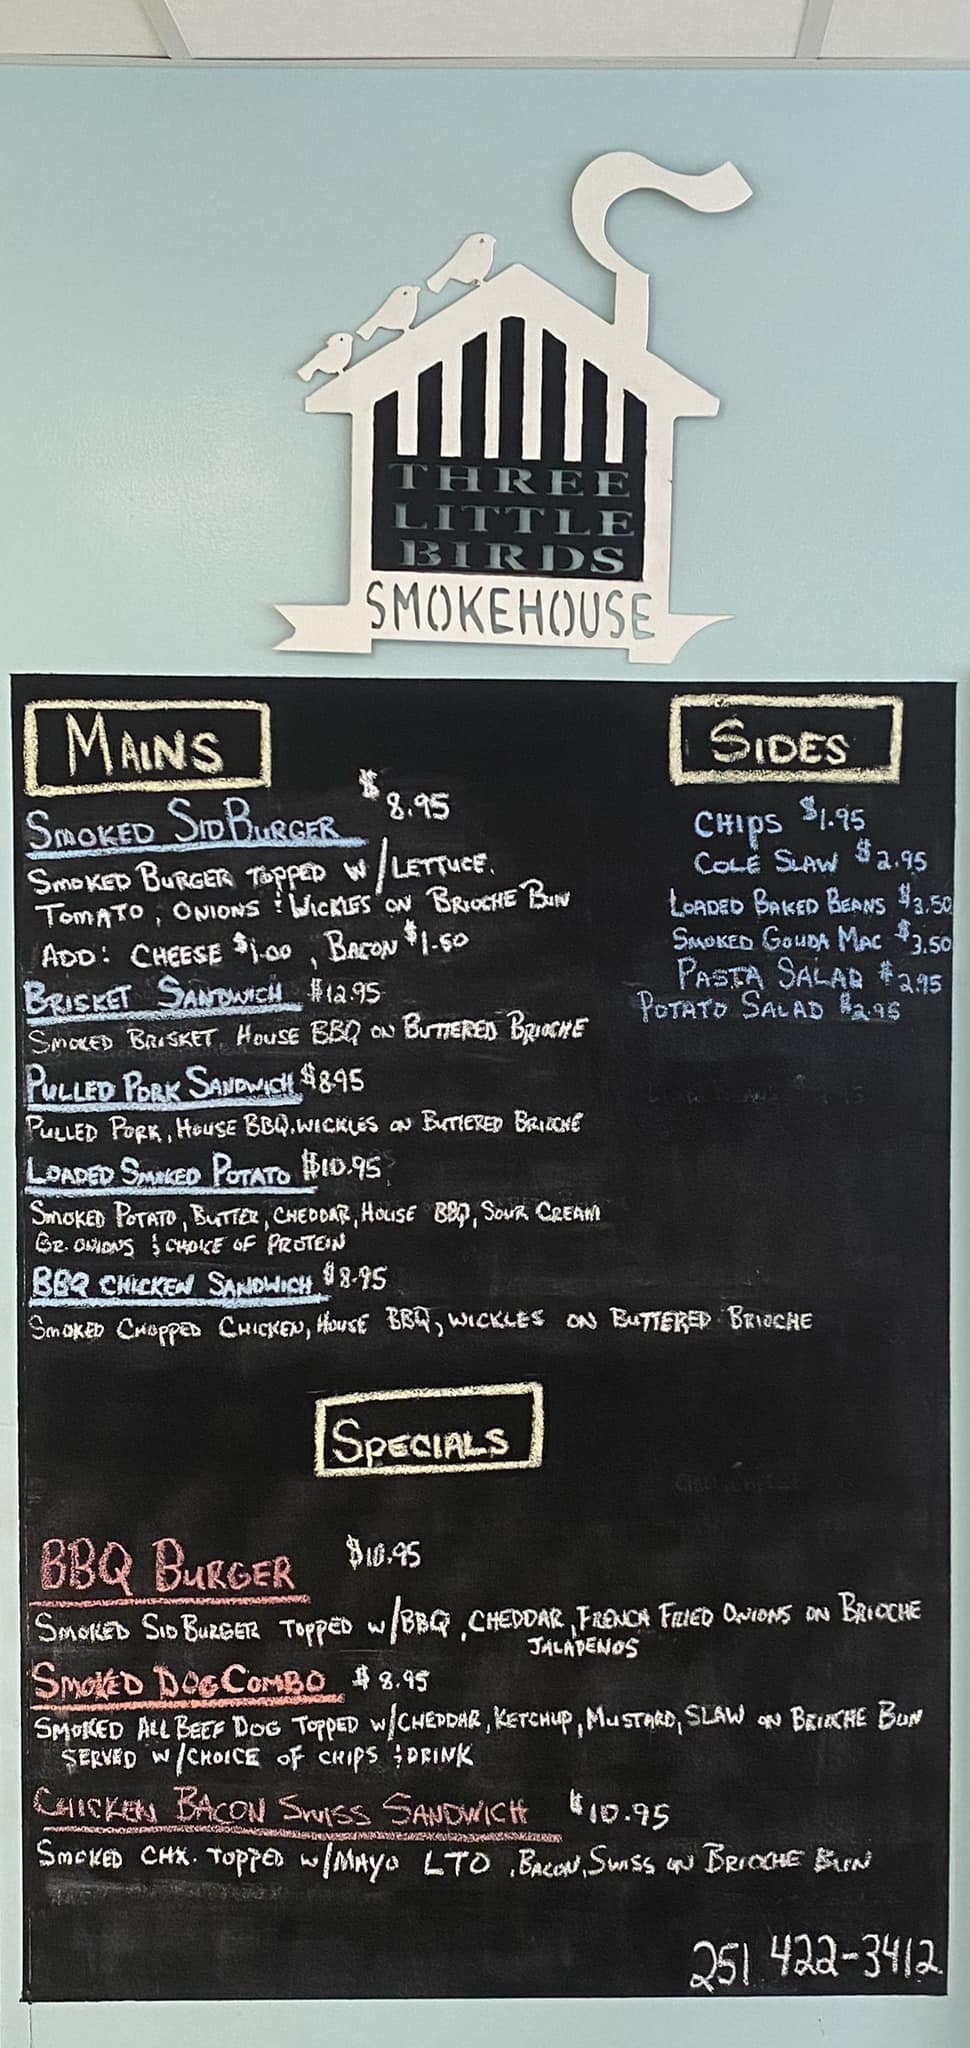 THREE
LITTLE
BIRDS
SMOKEHOUSE
MAINS
SMOKED SID BURGER $8.95
SMOKED BURGER TOPPED W/LETTUCE.
TOMATO, ONIONS & WICKLES ON BRIOCHE BUN
ADD: CHEESE $1.00, BACON $1.50
BRISKET SANDWICH $12.95
SMOKED BRISKET, HOUSE BBQ ON BUTTERED BRIOCHE
PULLED PORK SANDWICH $8.95
PULLED PORK, HOUSE BBQ, WICKLES ON BUTTERED BRIOCHE
LOADED SMOKED POTATO $10.95
SMOKED POTATO, BUTTER, CHEDDAR, HOUSE BBQ, SOUR CREAM
GR. ONIONS & CHOICE OF PROTEIN
BBQ CHICKEN SANDWICH $8.95
SMOKED CHOPPED CHICKEN, HOUSE BBQ, WICKLES ON BUTTERED BRIOCHE
SIDES
CHIPS $1.95
COLE SLAW $2.95
LOADED BAKED BEANS $3.50
SMOKED GOUDA MAC $3.50
PASTA SALAD $2.95
POTATO SALAD $2.95
SPECIALS
BBQ BURGER $10.95
SMOKED SID BURGER TOPPED W/BBQ, CHEDDAR, FRENCH FRIED ONIONS ON BRIOCHE
JALAPENOS
SMOKED DOG COMBO $8.95
SMOKED ALL BEEF DOG TOPPED W/CHEDDAR, KETCHUP, MUSTARD, SLAW ON BRIOCHE BUN
SERVED W/CHOICE OF CHIPS & DRINK
CHICKEN BACON SWISS SANDWICH $10.95
SMOKED CHX. TOPPED W/MAYO LTO, BACON, SWISS ON BRIOCHE BUN
251 422-3412